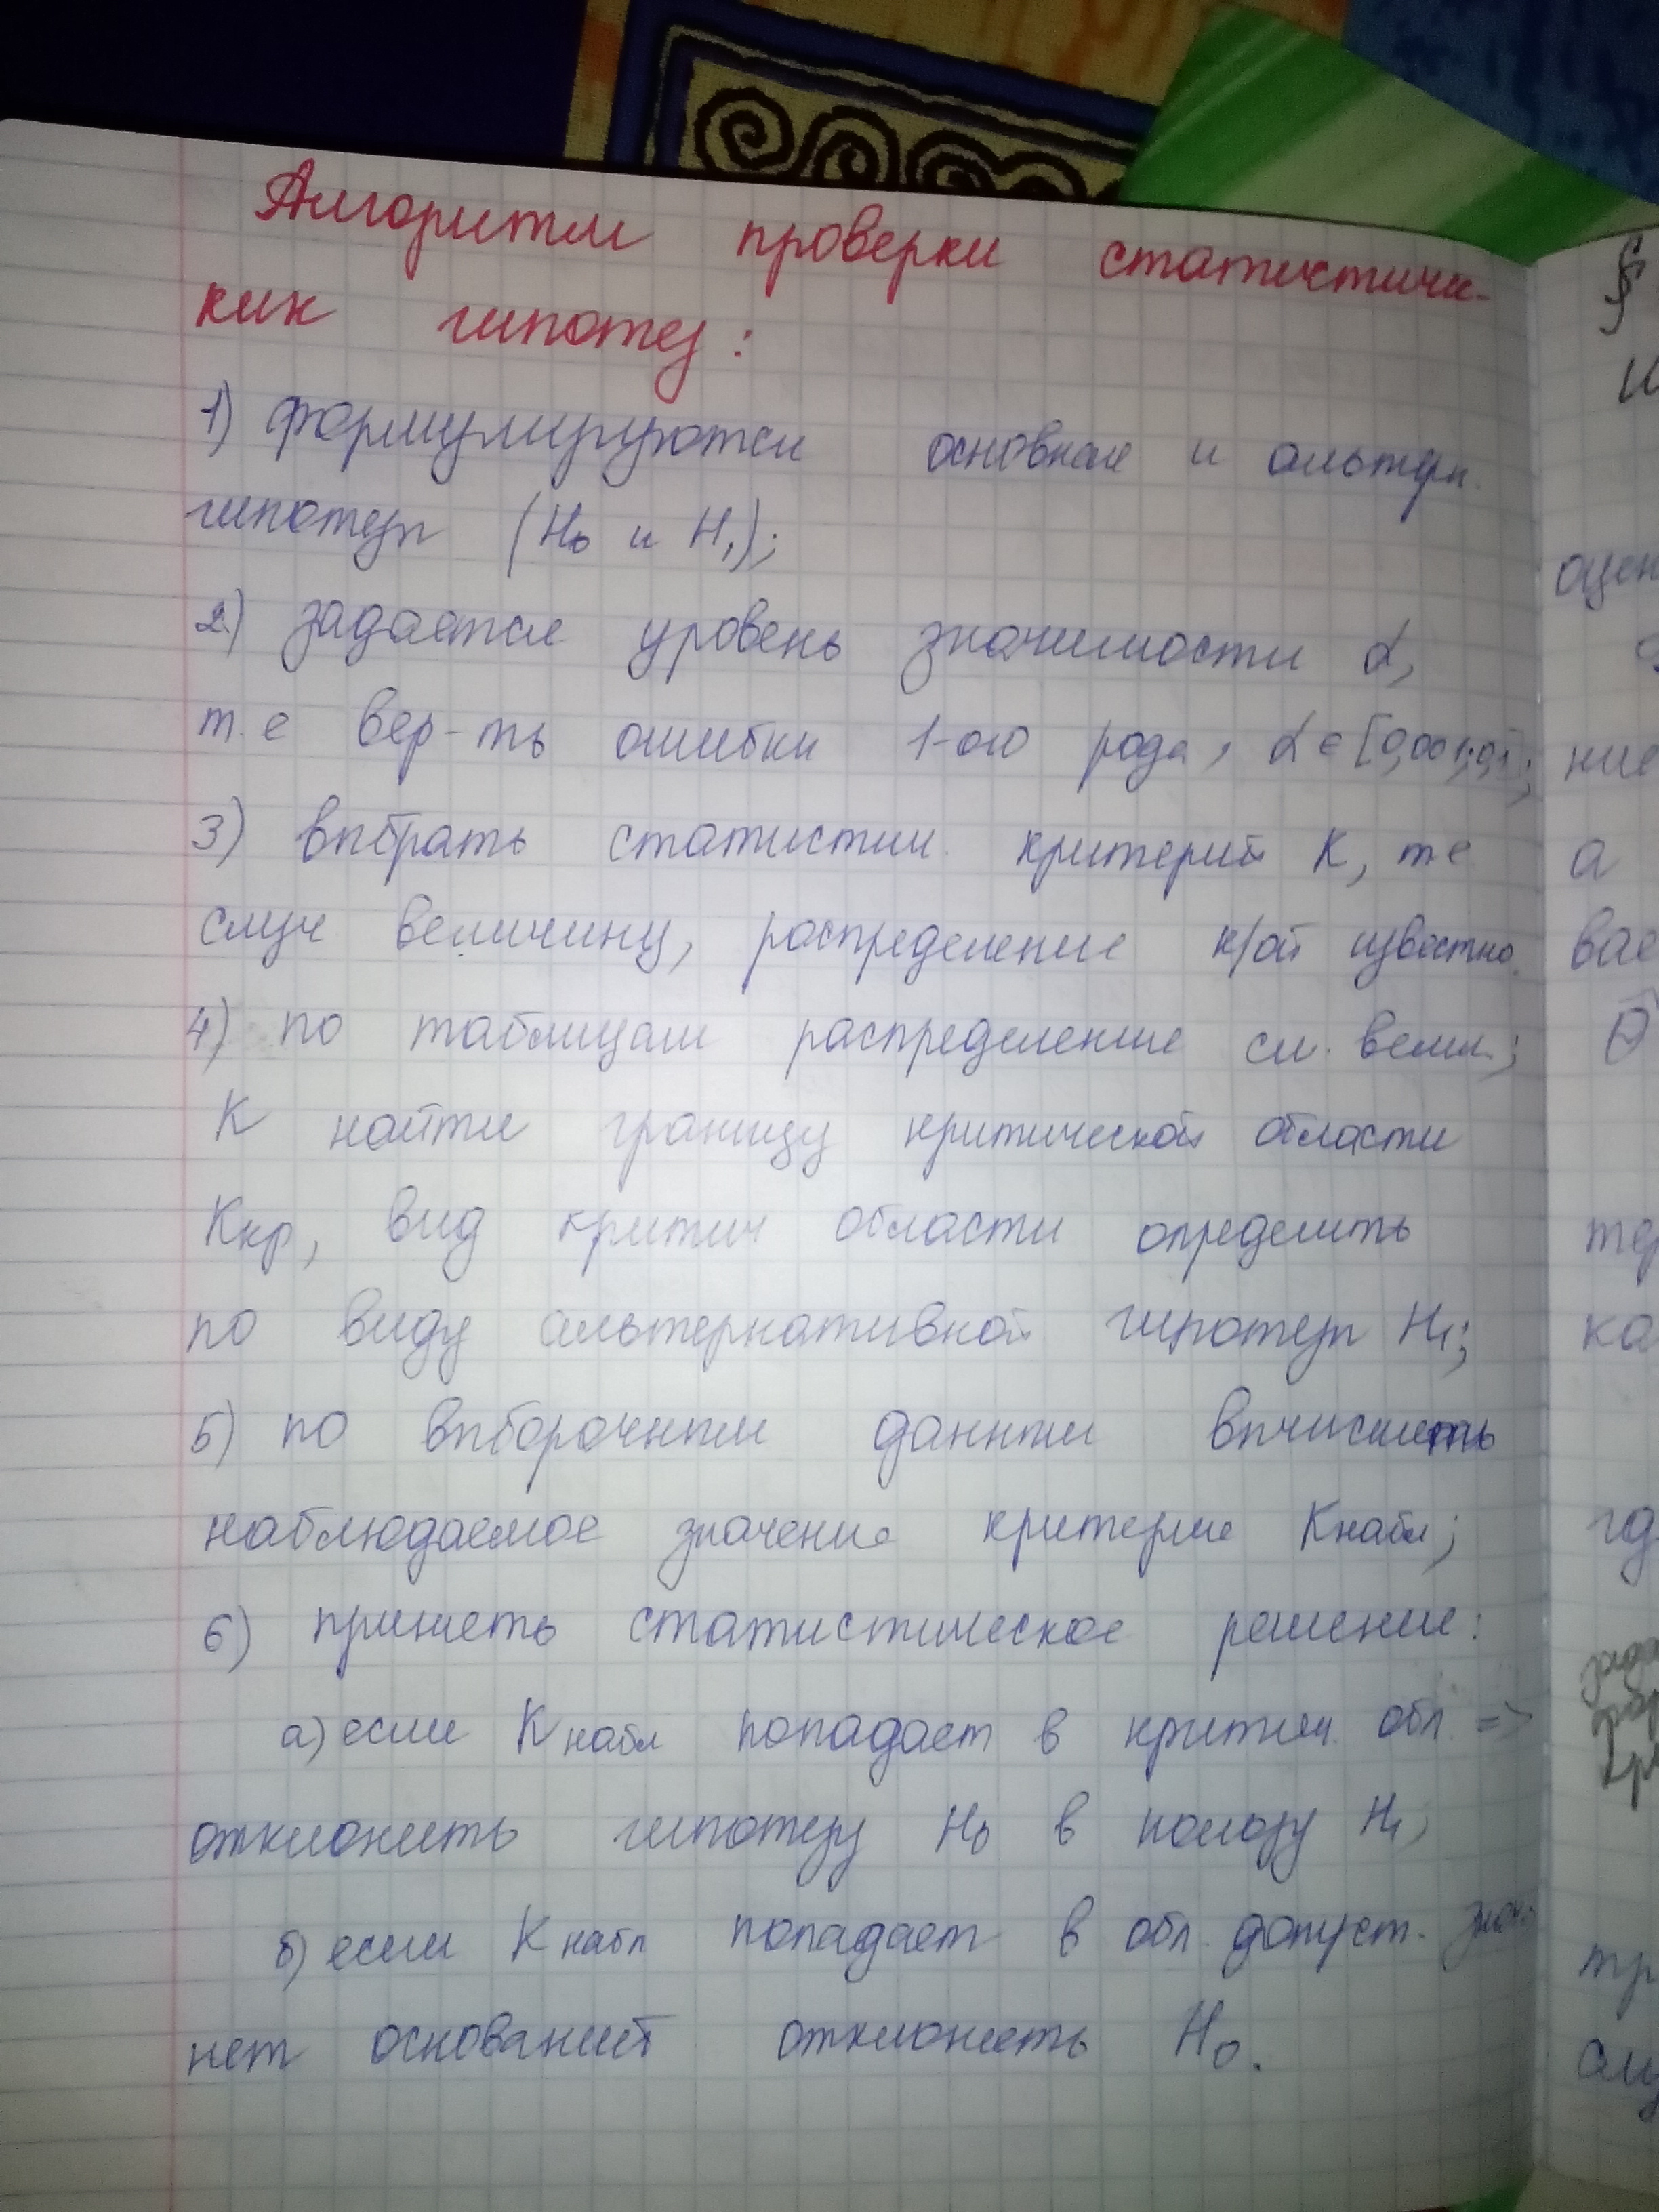 Алгоритм проверки статистичес-
ких гипотез:
§
1) формулируются основная и альтерн.
гипотезы (H₀ и H₁);
2) задается уровень значимости α,
т.е вер-ть ошибки 1-ого рода, α ∈ [0,001;0,1];
3) выбрать статистич. критерий K, т.е
случ величину, распределение к/ой известно.
4) по таблицам распределение сл. велич.;
K найти границу критической области
Kкр, вид критич области определить
по виду альтернативной гипотезы H₁;
5) по выборочным данным вычислить
наблюдаемое значение критерия Kнабл;
6) принять статистическое решение:
а) если Kнабл попадает в критич. обл. =>
отклонить гипотезу H₀ в пользу H₁;
б) если Kнабл попадает в обл. допуст. знач.
нет оснований отклонить H₀.